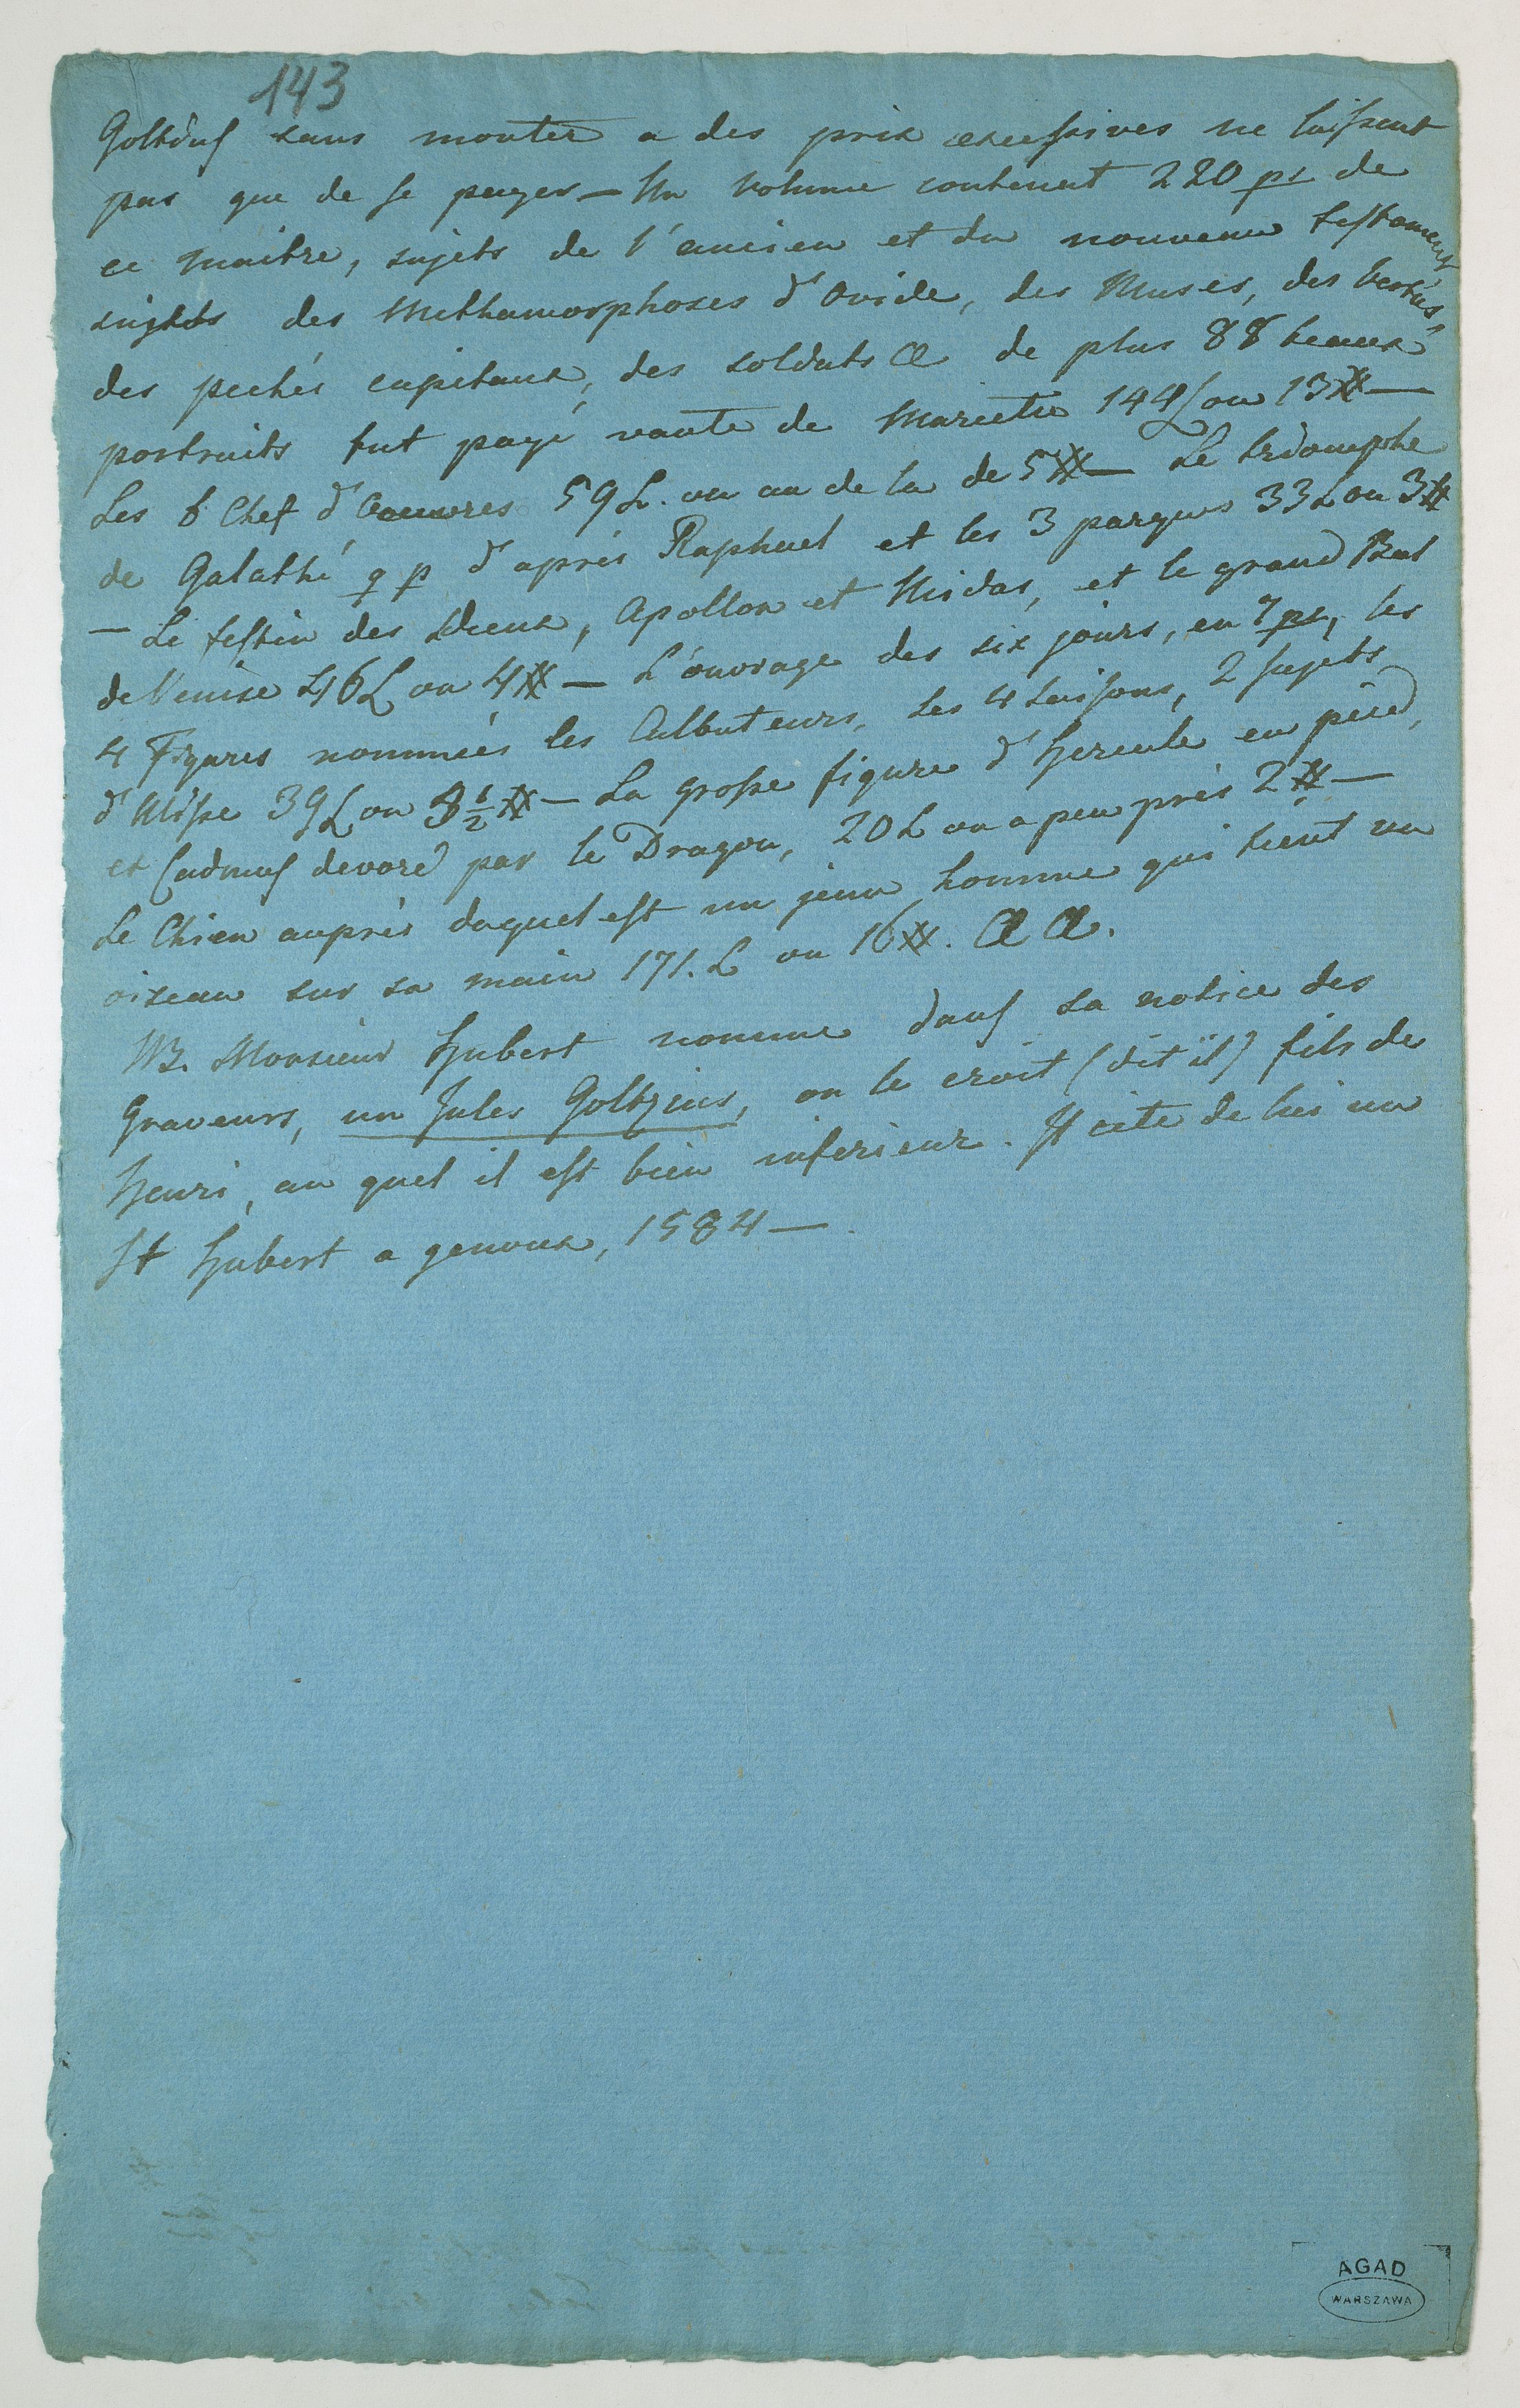 143
Goltzius sans monter a des prix excessives ne laissent
pas que de se payer — Un volume contenent 220 ps de
ce Maitre, sujets de l'ancien et du nouveau testament
sujets des Methamorphoses d'Ovide, des Muses, des Vertus,
des pechés capitaux, des soldats &c de plus 88 beaux
portraits fut payé vante de Mariette 144 L ou 13 ## —
Les 6 Chef d'Oeuvres 59 L. ou au de la de 5 ## — Le triomphe
de Galathé g p d'aprés Raphael et les 3 parques 33 L ou 3 ##
— Le festin des Dieux, Apollon et Midas, et le grand Bal
de Venise 46 L ou 4 ## — L'ouvrage des six jours, en 7 ps, les
4 Figures nommées les Culbuteurs, Les 4 Saisons, 2 sujets
d'Ulisse 39 L ou 3 1/2 ## — La grosse figure d'Hercule en pied,
et Cadmus devoré par le Dragon, 20 L ou a peu près 2 ## —
Le Chien auprés duquel est un jeun homme qui tient un
oiseau sur sa main 171. L ou 16 ##. &c &c.
NB. Monsieur Hubert nomme dans sa notice des
Graveurs, un Jules Goltzius, on le croit (dit il) fils de
Henri, au quel il est bien inferieur. Il cite de lui un
St Hubert a genoux, 1584 —
AGAD
WARSZAWA